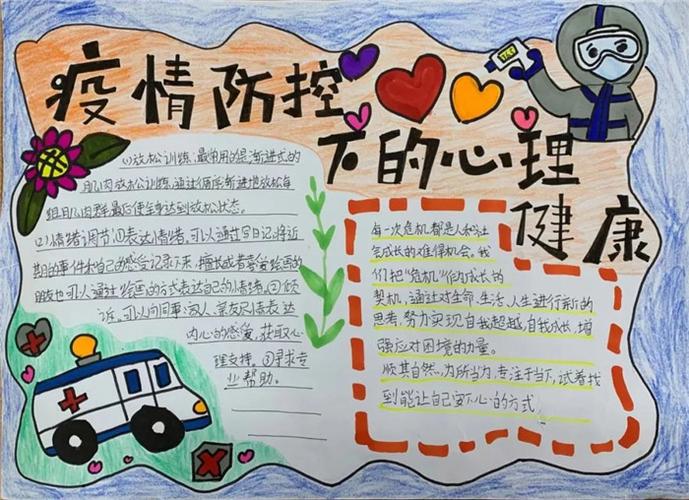 疫情防控
下的心理
健康
(1)放松训练、最常用的是渐进式的
肌肉放松训练,通过循序渐进地放松每
组肌肉群最后使全身达到放松状态。
(2)情绪调节①表达情绪,可以通过写日记,将近
期的事件和自己的感受记录下来,擅长或者喜爱绘画的
朋友也可以通过绘画的方式表达自己的情绪,②倾
诉。可以向同事、家人、亲友尽情表达
内心的感受,获取心
理支持。③寻求专
业帮助。
每一次危机都是人和社
会成长的难得机会。我
们把“危机”作为成长的
契机,通过对生命、生活、人生进行新的
思考,努力实现自我超越,自我成长,增
强应对困境的力量。
顺其自然、为所当为,专注于当下,试着找
到能让自己安下心的方式